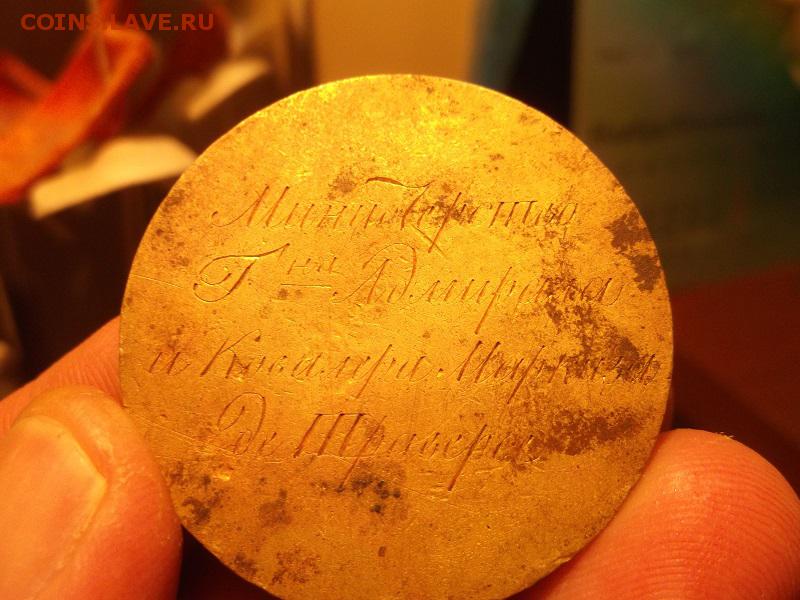 COINS.LAVE.RU
Министерство
Г на Адмирала
и Кавалера Маркиза
де Траверсе